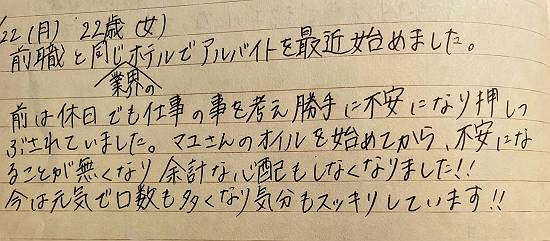 22(月) 22歳(女)
前職と同じホテルでアルバイトを最近始めました。
業界の
前は休日でも仕事の事を考え勝手に不安になり押しつ
ぶされていました。マユさんのオイルを始めてから、不安にな
ることが無くなり余計な心配もしなくなりました!!
今は元気で口数も多くなり気分もスッキリしています!!